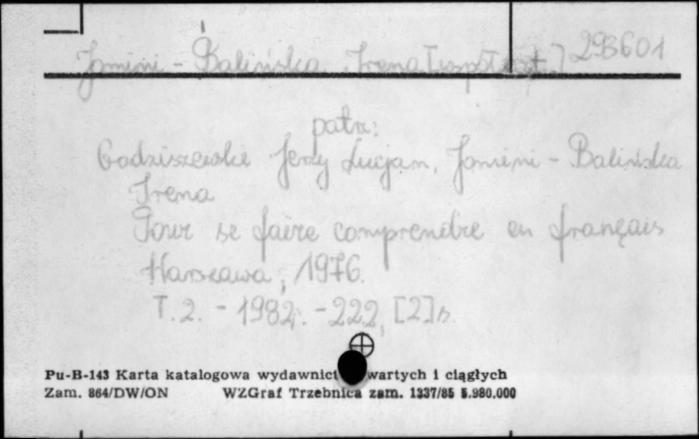 Jomini - Balińska Irena [współaut.] 293601
patrz:
Godziszewski Jerzy Lucjan, Jomini - Balińska
Irena
Pour se faire comprendre en français
Warszawa, 1976.
T. 2. - 1982. - 222, [2] s.
Pu-B-143 Karta katalogowa wydawnict wartych i ciągłych
Zam. 864/DW/ON WZGraf Trzebnica zam. 1337/85 5.980.000